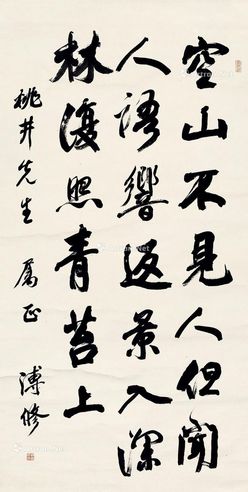 空山不見人但聞
人語響返景入深
林復照青苔上
桃井先生 屬正
溥修